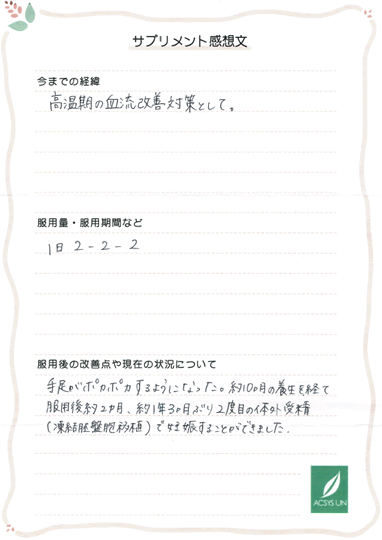 サプリメント感想文
今までの経緯
高温期の血流改善対策として。
服用量・服用期間など
1日 2-2-2
服用後の改善点や現在の状況について
手足がポカポカするようになった。約10ヶ月の養生を経て
服用後約2ヵ月、約1年3ヶ月ぶり2度目の体外受精
(凍結胚盤胞移植)で妊娠することができました.
ACSYS UN